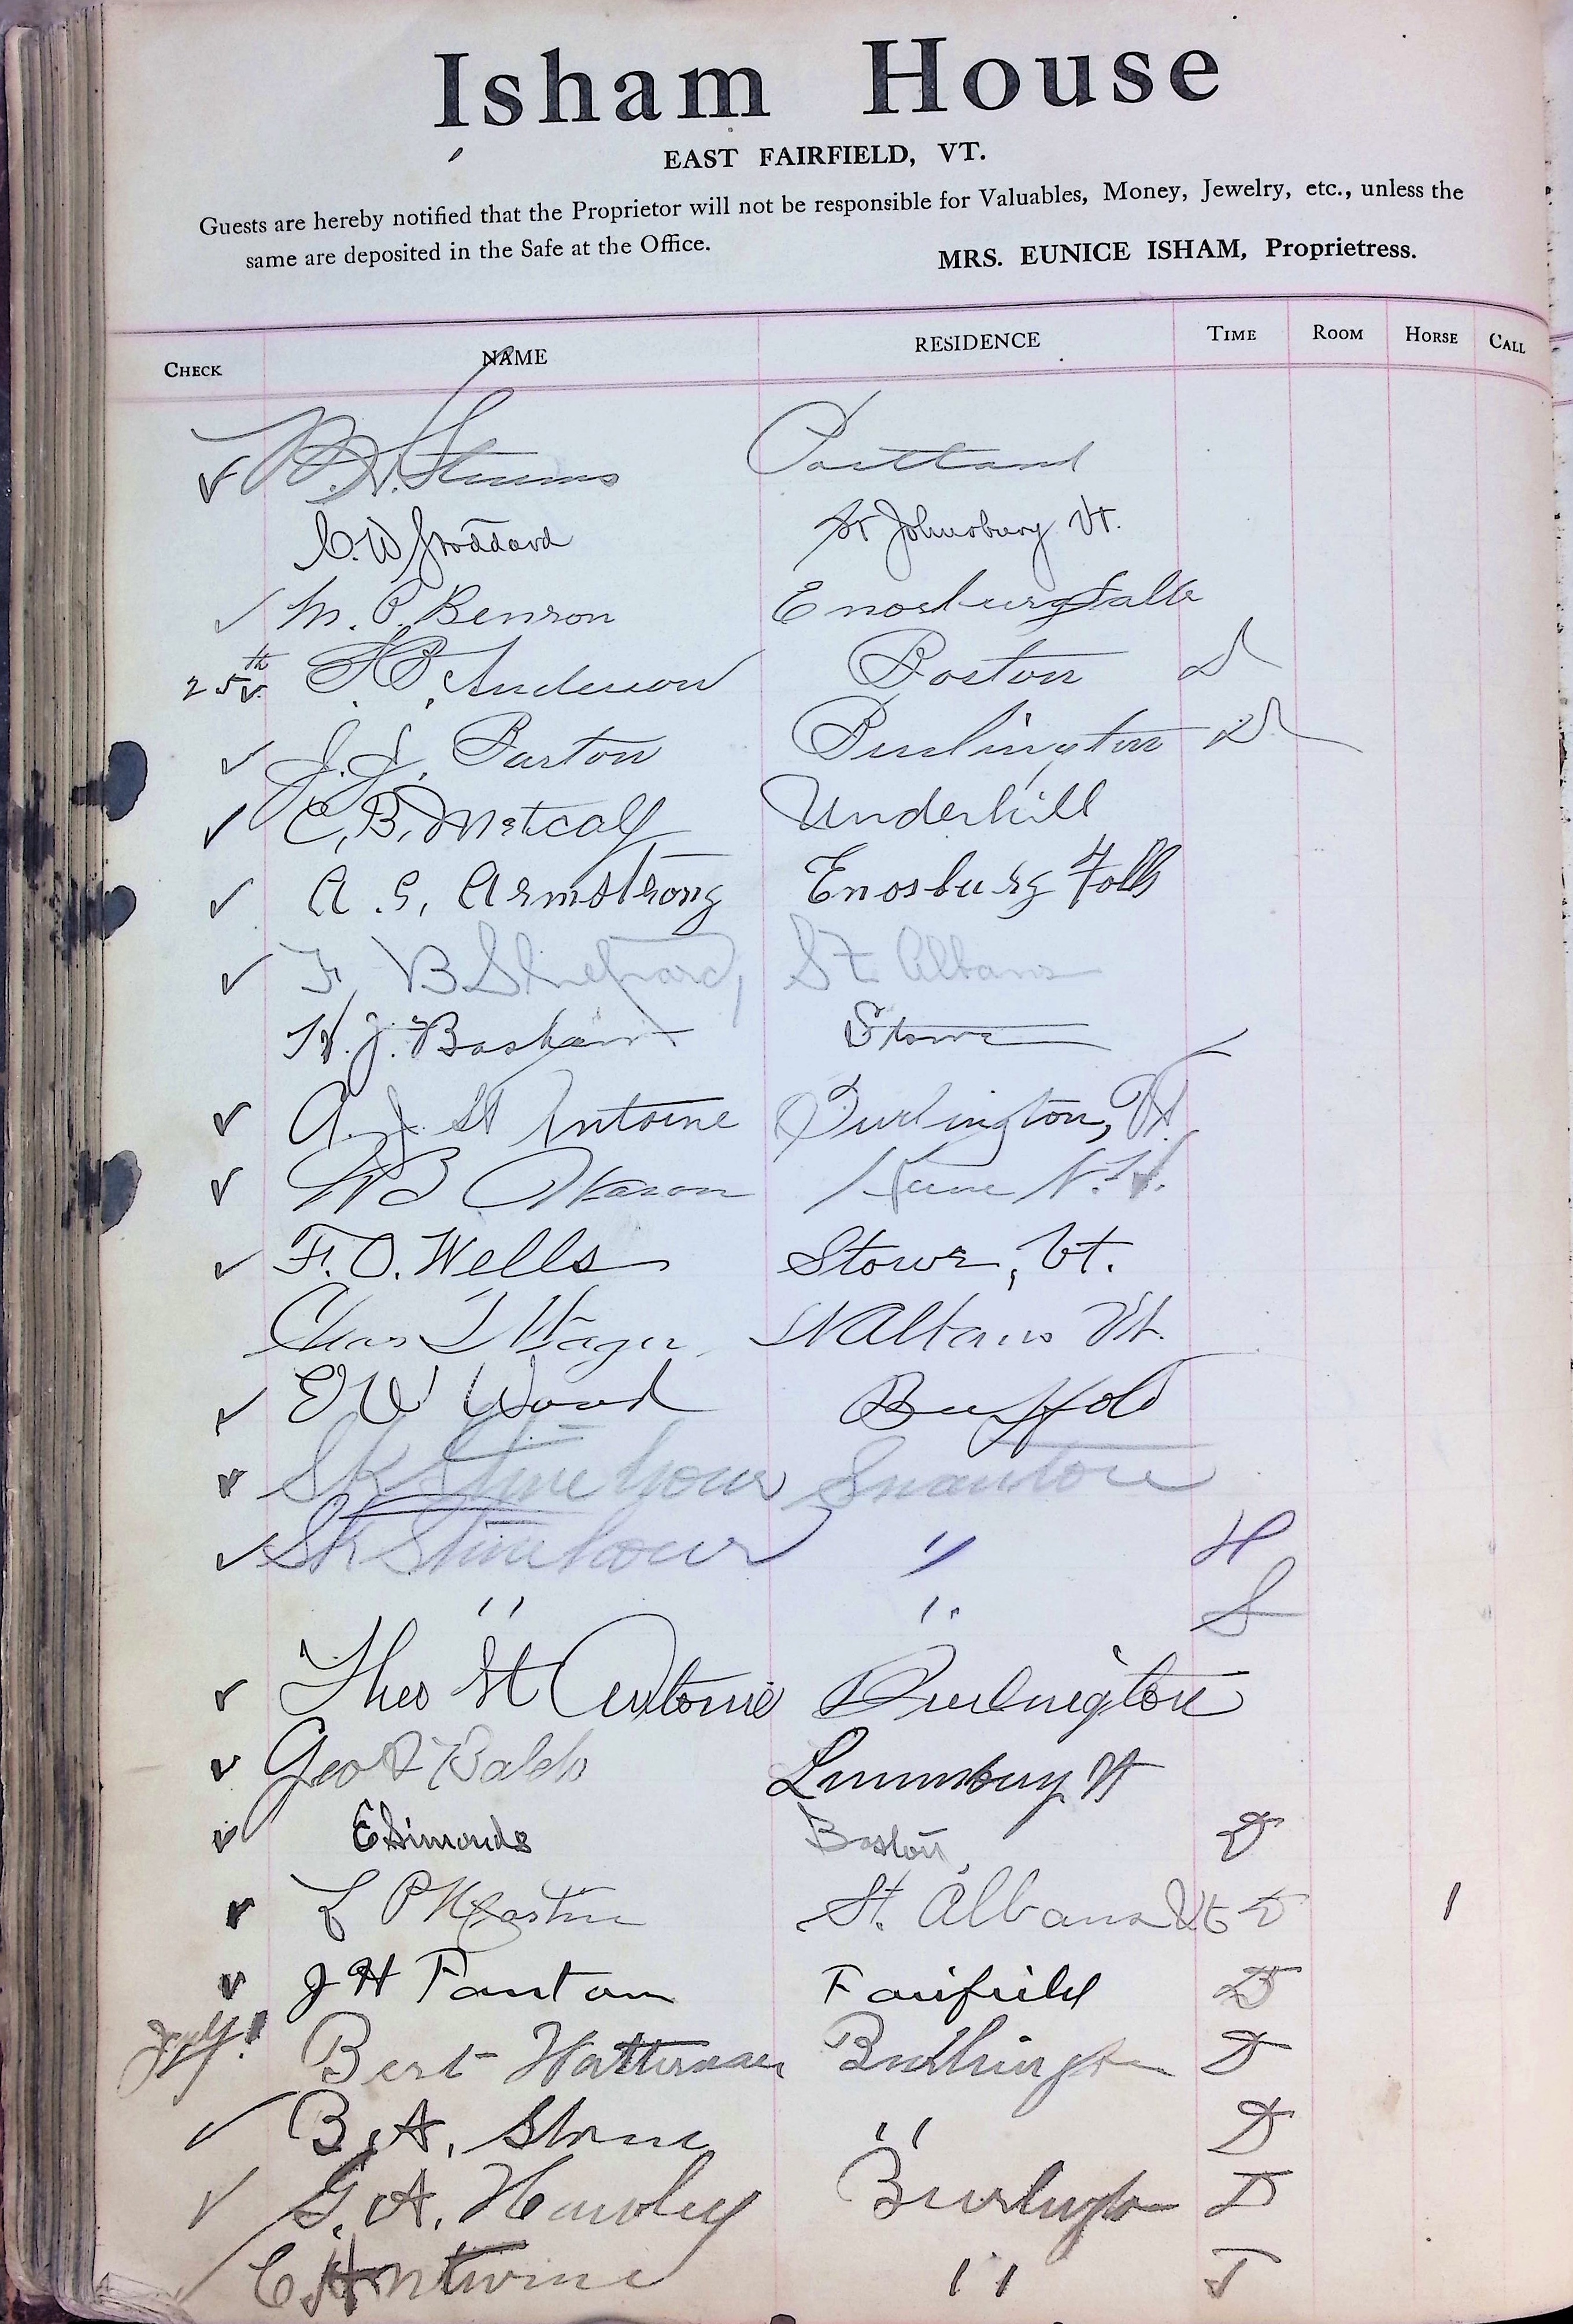 Isham House
EAST FAIRFIELD, VT.
Guests are hereby notified that the Proprietor will not be responsible for Valuables, Money, Jewelry, etc., unless the
same are deposited in the Safe at the Office.
MRS. EUNICE ISHAM, Proprietress.
CHECK NAME RESIDENCE TIME ROOM HORSE CALL
✓ Portland
C. W Stoddard St Johnsbury Vt.
✓ M. P. Benson Enosburg Falls
25th ✓ H B. Anderson Boston D
✓ J. J. Barton Burlington D
✓ C, B, Metcalf Underhill
✓ A. G, Armstrong Enosburg Falls
✓ F. B Shepard, St. Albans
H. J. Stowe
✓ A. J. St Antoine Burlington, Vt.
✓ W B N.H.
✓ F. O. Wells Stowe, Vt.
Chas L Hager St Albans Vt.
✓ E W Wood Buffalo
✓ S K Stinehour Swanton
✓ SK Stinehour " H
" " S
✓ Theo St Antoine Burlington
✓ Geo Balch Lunenburg Vt
✓ E Simonds Boston D
✓ L P Martin St. Albans Vt D 1
✓ J H Fantom Fairfield D
July 1 Bert Watterman Burlington D
✓ B, A, Stone " D
✓ G. A. Hawley Burlington D
✓ C " T